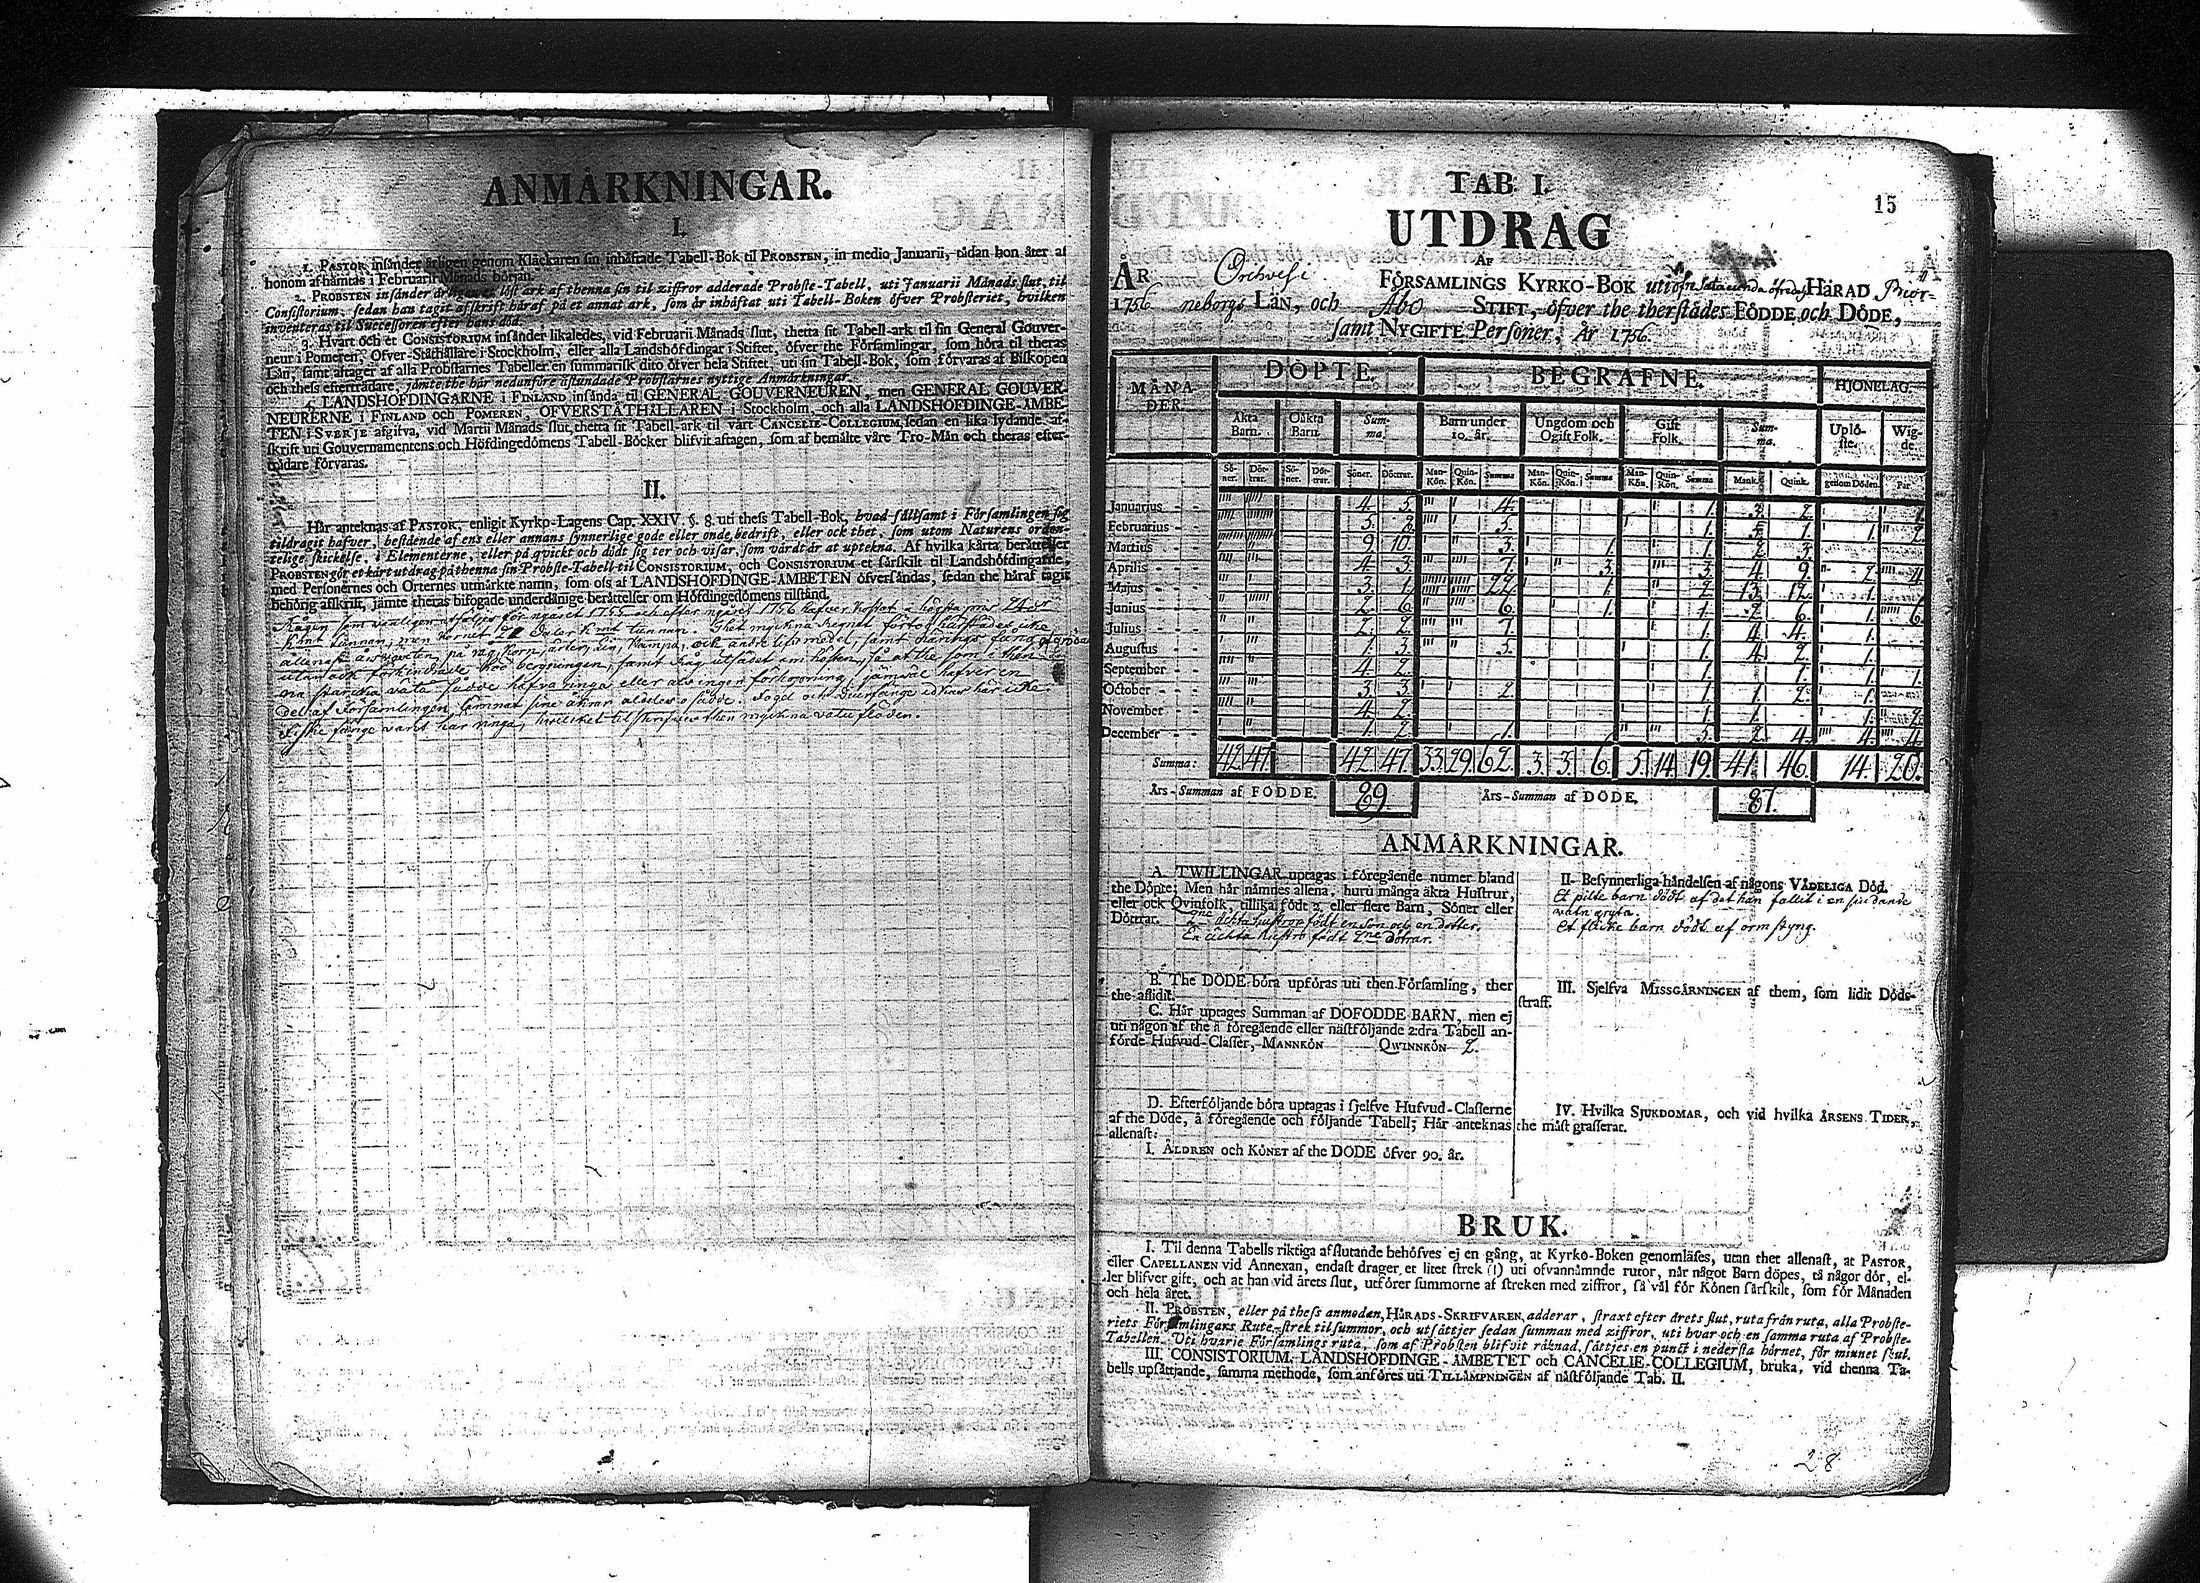 ANMÄRKNINGAR.
I.
1. PASTOR insänder årligen genom Klåckaren sin inhäftade Tabell-Bok til PROBSTEN, in medio Januarii, tådan hon åter af
honom af hämtas i Februarii Månads början.
2. PROBSTEN insänder årligen et löst ark af thenna sin til ziffror adderade Probste-Tabell, uti Januarii Månads slut, til
Consistorium, sedan han tagit afskrift häraf på et annat ark, som är inhäftat uti Tabell-Boken öfver Probsteriet, hvilken
inventeras til Successoren efter hans död.
3. Hvart och et CONSISTORIUM insänder likaledes, vid Februarii Månads slut, thetta sit Tabell-ark til sin General Gouver-
neur i Pomeren, Öfver-Ståthållare i Stockholm, eller alla Landshöfdingar i Stiftet, öfver the Församlingar, som höra til theras
Län, samt aftager af alla Probstarnes Tabeller en summarisk dito öfver hela Stiftet, uti sin Tabell-Bok, som förvaras af Biskopen
och thess efterträdare, jämte the här nedanföre åstundade Probstarnes nyttige Anmärkningar.
4. LANDSHÖFDINGARNE i FINLAND insända til GENERAL GOUVERNEUREN, men GENERAL GOUVER-
NEURERNE i FINLAND och POMEREN, ÖFVERSTÅTHÅLLAREN i Stockholm, och alla LANDSHÖFDINGE-ÄMBE-
TEN i SVERJE afgifva, vid Martii Månads slut, thetta sit Tabell-ark til vårt CANCELIE-COLLEGIUM, sedan en lika lydande af-
skrift uti Gouvernamentens och Höfdingedömens Tabell-Böcker blifvit aftagen, som af bemälte våre Tro-Män och theras efter-
trädare förvaras.
II.
Här anteknas af PASTOR, enligit Kyrko-Lagens Cap. XXIV. §. 8. uti thess Tabell-Bok, hvad sällsamt i Församlingen sig
tildragit hafver, bestående af ens eller annans synnerlige gode eller onde bedrift, eller ock thet, som utom Naturens orden-
telige skickelse, i Elementerne, eller på qvickt och dödt sig ter och visar, som värdt är at uptekna. Af hvilka kårta berättelser
PROBSTEN gör et kårt utdrag på thenna sin Probste-Tabell til CONSISTORIUM, och CONSISTORIUM et särskilt til Landshöfdingarne,
med Personernes och Orternes utmärkte namn, som oss af LANDSHÖFDINGE-ÄMBETEN öfversändas, sedan the häraf tagit
behörig afskrift, jämte theras bifogade underdånige berättelser om Höfdingedömens tilstånd.
Rågen som vanligen utsäljes för nyåret 1755 och efter nyåret 1756 hafver kostat i högsta pris 24 dr
Kmt tunnan, men Kornet 20 daler Kmt tunnan. Thet myckna regnet förtog härstädes icke
allenast årswäxten på råg, korn, ärter, lin, hampa, och andre lifsmedel,
utan ock förhindrade höö bergningen, samt råg utsädet om hösten, så at the som i then
våta sådde hafva ringa eller alsingen förhoppning, jämwäl hafver en
del af Församlingen lämnat sine åkrar aldeles o sådde. Fogel och Diurfänge idkas här icke.
Fiske fänge warit här ringa, hwilcket tilskrifwes then myckna watuflöden.
TAB. I.
15
UTDRAG
AF
ÅR 1756
FÖRSAMLINGS KYRKO-BOK uti HÄRAD Biör-
neborgs LÄN, och Åbo STIFT, öfver the therstädes FÖDDE och DÖDE,
samt NYGIFTE Personer, År 1756.
MÅNA-DER. DÖPTE. BEGRAFNE. HJONELAG
Äkta Barn. Oäkta Barn. Summa. Barn under 10. år. Ungdom och Ogift Folk. Gift Folk. Summa. Uplöste. Wigde.
Söner. Döttrar. Söner. Döttrar. Söner. Döttrar. Man-Kön. Quin-Kön. Summa Man-Kön. Quin-Kön. Summa Man-Kön. Quin-Kön. Summa Mank. Quink. genom Döden. Par
Januarius 4. 5. 4. 1. 3. 2. 1.
Februarius 5. 8. 5. 1. 5. 1. 1. 2.
Martius 9 10. 3. 1. 1. 2. 3.
Aprilis 4. 3. 7. 3. 3. 4. 9. 2. 4.
Majus 3. 1. 22. 1. 2. 13. 12. 1.
Junius 2. 6. 6. 1. 1. 2. 6. 1. 6.
Julius 2. 2. 7. 1. 4. 4. 1.
Augustus 1. 3. 5. 1. 4. 2. 1.
September 4. 2. 1. 1. 1. 1.
October 3. 3. 2. 1. 1. 2. 1.
November 4. 2. 1. 1. 1. 2.
December 1. 2. 1. 5. 2. 4. 4. 4.
Summa: 42 47 42. 47 33. 29. 62. 3. 3. 6. 5. 14. 19. 41. 46. 14. 20.
Års-Summan af FÖDDE. 89. Års-Summan af DÖDE. 87.
ANMÄRKNINGAR.
A. TWILLINGAR uptagas i föregående numer bland
the Döpte; Men här nämnes allena, huru många äkta Hustrur,
eller ock Qvinfolk, tillika födt 2. eller flere Barn, Söner eller
Döttrar.
2ne ächta hustror födt en son och en dotter.
En ächta hustro födt 2ne dötrar.
B. The DÖDE böra upföras uti then Församling, ther
the aflidit.
C. Här uptages Summan af DÖFÖDDE BARN, men ej
uti någon af the å föregående eller nästföljande 2:dra Tabell an-
förde Hufvud-Classer, MANNKÖN QWINNKÖN 2.
D. Efterföljande böra uptagas i sjelfve Hufvud-Classerne
af the Döde, å föregående och följande Tabell; Här anteknas
allenast:
I. ÅLDREN och KÖNET af the DÖDE öfver 90. år.
II. Besynnerliga händelsen af någons VÅDELIGA Död.
Et pilte barn dödt af det han fallit i en siudande
watn gryta.
Et flicke barn dödt af orm styng.
III. Sjelfva MISSGÄRNINGEN af them, som lidit Döds-
straff.
IV. Hvilka SJUKDOMAR, och vid hvilka ÅRSENS TIDER,
the mäst grasserat.
BRUK.
I. Til denna Tabells riktiga afslutande behöfves ej en gång, at Kyrko-Boken genomläses, utan thet allenast, at PASTOR,
eller CAPELLANEN vid Annexan, endast drager et litet strek (1) uti ofvannämnde rutor, når något Barn döpes, tå någor dör, el-
ler blifver gift, och at han vid årets slut, utförer summorne af streken med ziffror, så väl för Könen särskilt, som för Månaden
och hela året.
II. PROBSTEN, eller på thess anmodan, HÄRADS-SKRIFVAREN, adderar, straxt efter årets slut, ruta från ruta, alla Probste-
riets Församlingars Rute-strek til summor, och utsättjer sedan summan med ziffror, uti hvar och en samma ruta af Probste-
Tabellen. Uti hvarje Församlings ruta, som af Probsten blifvit räknad, sättjes en punct i nedersta hörnet, för minnet skul.
III. CONSISTORIUM, LANDSHÖFDINGE-ÄMBETET och CANCELIE-COLLEGIUM, bruka, vid thenna Ta-
bells upsättjande, samma methode, som anföres uti TILLÄMPNINGEN af nästföljande Tab. II.
28